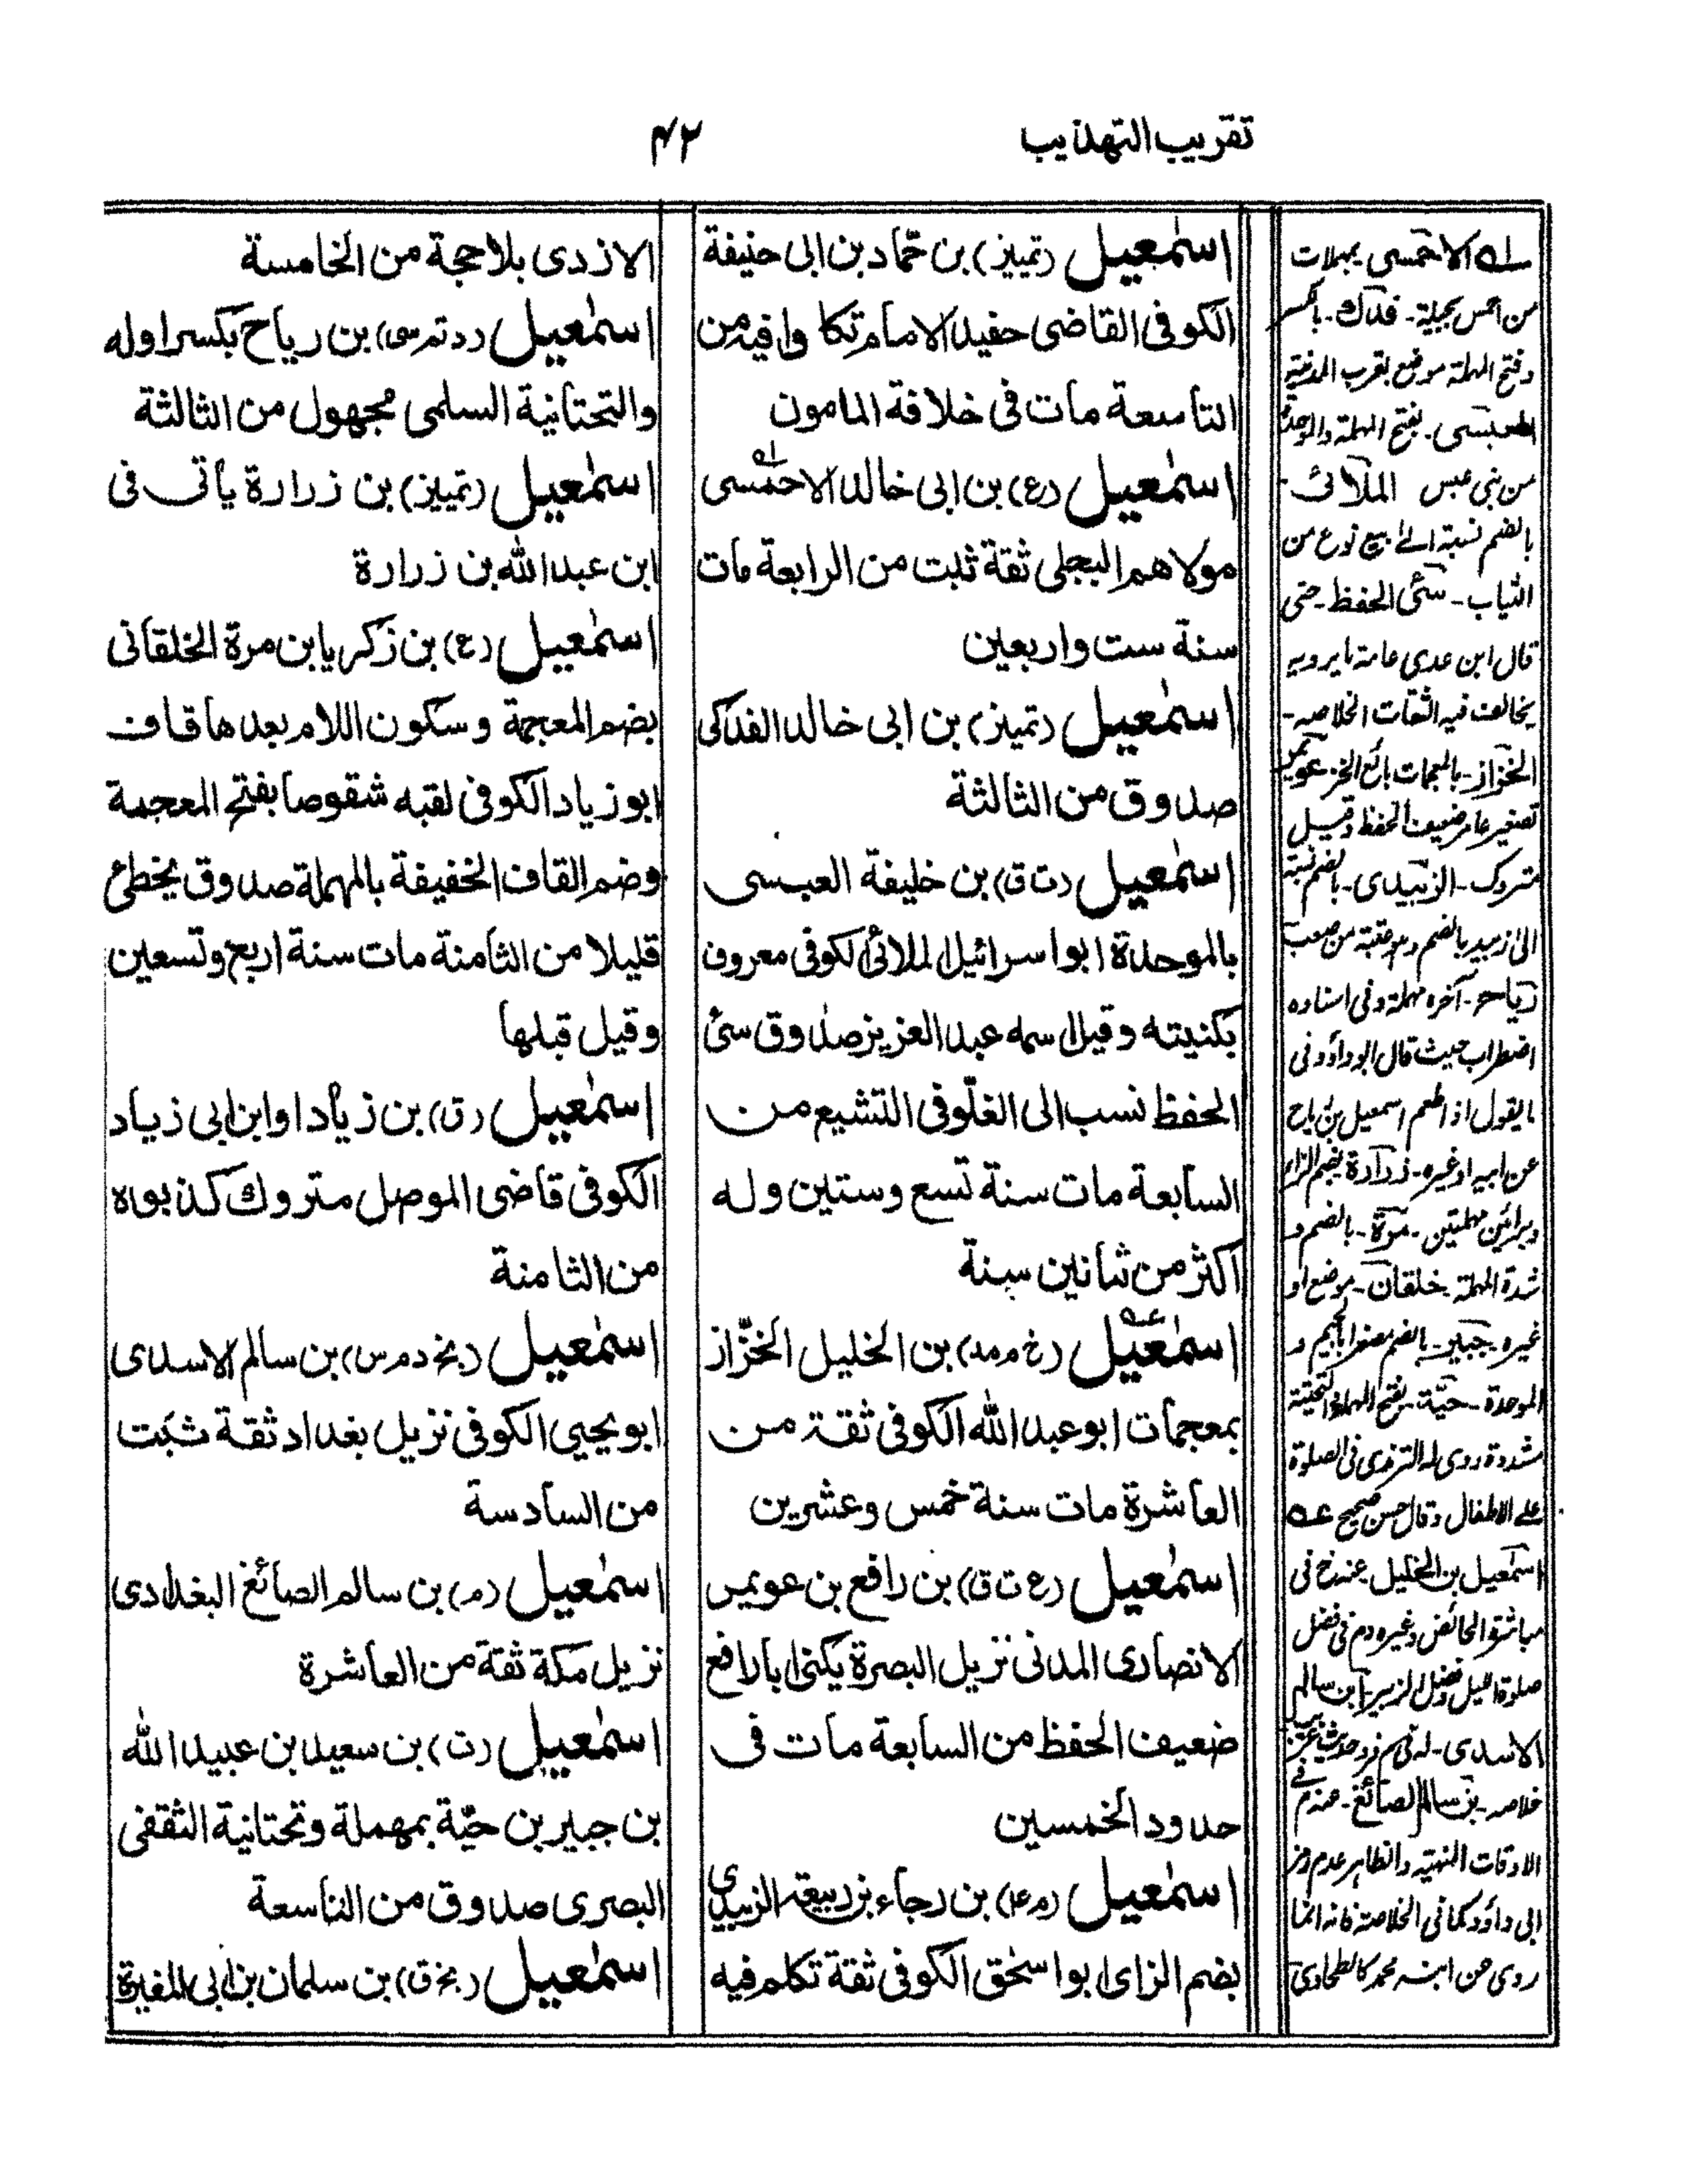 تقريب التهذيب
۴۲
اسمٰعيل (تمييز) بن حمّاد بن ابى حنيفة
الكوفى القاضى حفيد الامام تكلموا فيه من
التاسعة مات فى خلافة المامون
اسمٰعيل (ع) بن ابى خالد الاحمسى
مولاهم البجلى ثقة ثبت من الرابعة مات
سنة ست واربعين
اسمٰعيل (تميز) بن ابى خالد الفدكى
صدوق من الثالثة
اسمٰعيل (ت ق) بن خليفة العبسى
بالموحدة ابو اسرائيل الملائى الكوفى معروف
بكنيته وقيل اسمه عبد العزيز صدوق سئ
الحفظ نسب الى الغلّو فى التشيع من
السابعة مات سنة تسع وستين وله
اكثر من ثمانين سنة
اسمٰعيل (خ م مد) بن الخليل الخزّاز
بمعجمات ابو عبد الله الكوفى ثقة من
العاشرة مات سنة خمس وعشرين
اسمٰعيل (ع ت ق) بن رافع بن عويمر
الانصارى المدنى نزيل البصرة يكنى ابا رافع
ضعيف الحفظ من السابعة مات فى
حدود الخمسين
اسمٰعيل (م ع) بن رجاء بن ربيعة الزبيدى
بضم الزاى ابو اسحٰق الكوفى ثقة تكلم فيه
الازدى بلا حجة من الخامسة
اسمٰعيل (د تم سى) بن رياح بكسر اوله
والتحتانية السلمى مجهول من الثالثة
اسمٰعيل (تمييز) بن زرارة يأتى فى
ابن عبد الله بن زرارة
اسمٰعيل (ع) بن زكريا بن مرة الخلقانى
بضم المعجمة وسكون اللام بعدها قاف
ابو زياد الكوفى لقبه شقوصا بفتح المعجمة
وضم القاف الخفيفة بالمهملة صدوق يخطئ
قليلا من الثامنة مات سنة اربع وتسعين
وقيل قبلها
اسمٰعيل (ق) بن زياد او ابن ابى زياد
الكوفى قاضى الموصل متروك كذبوه
من الثامنة
اسمٰعيل (بخ د م س) بن سالم الاسدى
ابو يحيى الكوفى نزيل بغداد ثقة ثبت
من السادسة
اسمٰعيل (م) بن سالم الصائغ البغدادى
نزيل مكة ثقة من العاشرة
اسمٰعيل (ت) بن سعيد بن عبيد الله
بن جبير بن حيّة بمهملة وتحتانية الثقفى
البصرى صدوق من التاسعة
اسمٰعيل (بخ ق) بن سلمان بن ابى المغيرة
له الاحمسى بمهملات
من احمس بجيلة - فدك - بالكسر
وفتح المهملة موضع بقرب المدينة
العبسى - بفتح المهملة والموحدة
من بنى عبس الملائى -
بالضم نسبة الى بيع نوع من
الثياب - سئى الحفظ - حتى
قال ابن عدى عامة ما يرويه
يخالف فيه الثقات الخلاصه -
الخزاز - بالمعجمات بائع الخز عويمر
تصغير عامر ضعيف الحفظ وقيل
متروك - الزبيدى - بالضم نسبة
الى زبيد بالضم
رياح - آخره مهملة وفى اسناده
اضطراب حيث قال ابو داؤد فى
ما يقول اذا طعم اسمعيل بن رياح
عن ابيه او غيره - زرارة بضم الزاء
وبرائين مهملتين - مرة - بالضم و
شدة المهملة خلقان - موضع او
غيره - جبير - بالضم مصغرا بالجيم و
الموحدة - حيّة - بفتح المهملة والتحتية
مشددة روى له الترمذى فى الصلوة
على الاطفال وقال حسن صحيح عه
اسمٰعيل بن الخليل عند خ فى
مباشرة الحائض وغيره و م فى فضل
صلوة الليل وفضل الزبير ابن سالم
الاسدى - له فى م فرد حديث
خلاصه - بن سالم الصائغ - عند م فى
الاوقات المنهية والظاهر عدم رمز
ابى داؤد كما فى الخلاصة فانه انما
روى عن ابنه محمد كالطحاوى